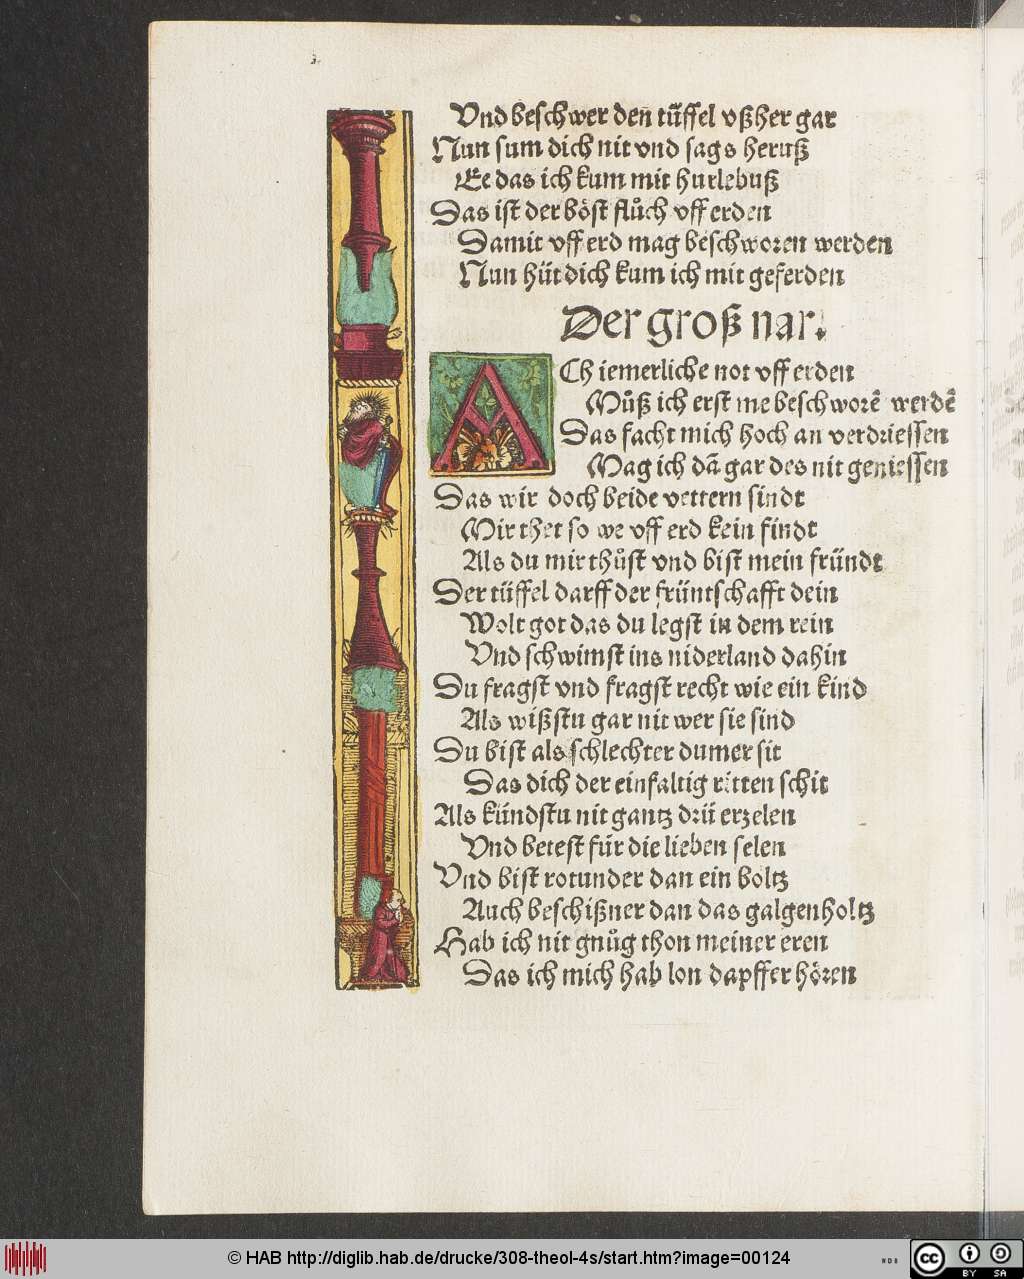 Vnd beschwer den tüffel vßher gar
Nun sum dich nit vnd sags heruß
Ee das ich kum mit hurlebuß
Das ist der böst flůch vff erden
Damit vff erd mag beschworen werden
Nun hüt dich kum ich mit geferden
Der groß nar.
ACh iemerliche not vff erden
Můß ich erst me beschworē werdē
Das facht mich hoch an verdriessen
Mag ich dā gar des nit geniessen
Das wir doch beide vettern sindt
Mir thet so we vff erd kein findt
Als du mir thůst vnd bist mein fründt
Der tüffel darff der früntschafft dein
Wolt got das du legst in dem rein
Vnd schwimst ins niderland dahin
Du fragst vnd fragst recht wie ein kind
Als wißstu gar nit wer sie sind
Du bist als schlechter dumer sit
Das dich der einfaltig ritten schit
Als kündstu nit gantz drü erzelen
Vnd betest für die lieben selen
Vnd bist rotunder dan ein boltz
Auch beschißner dan das galgenholtz
Hab ich nit gnůg thon meiner eren
Das ich mich hab lon dapffer hören
© HAB http://diglib.hab.de/drucke/308-theol-4s/start.htm?image=00124
WDB
cc BY SA